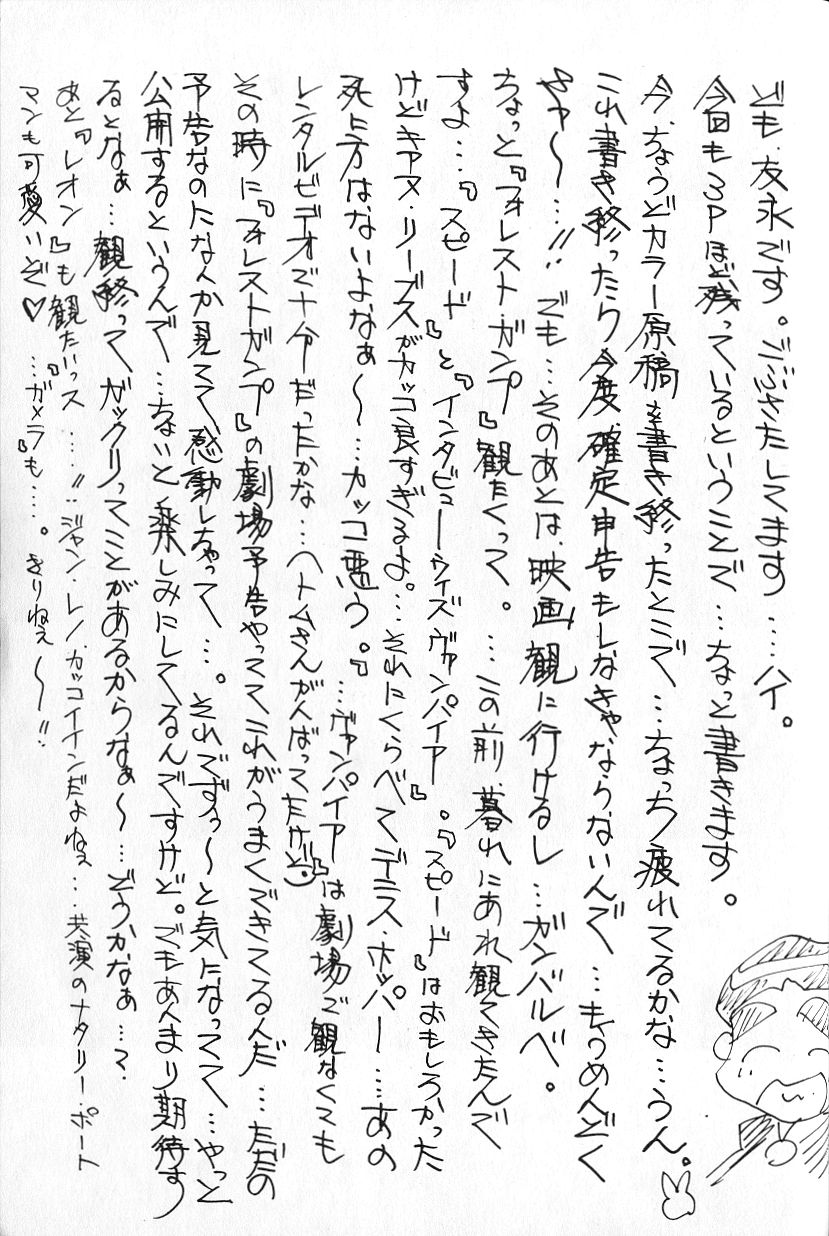 ども.友永です。ごぶさたしてます……ハイ。
今回も3Pほど残っているということで…ちょっと書きます。
今、ちょうどカラー原稿を書き終ったとこで…ちょっち疲れてるかな…うん。
これ書き終ったら今度、確定申告もしなきゃならないんで…もうめんどく
さァ〜…!! でも…そのあとは、映画観に行けるし…ガンバルベ。
ちょっと『フォレスト・ガンプ』観たくって。…この前、暮れにあれ観てきたんで
すよ…『スピード』と『インタビューウィズヴァンパイア』。『スピード』はおもしろかった
けどキアヌ・リーブスがカッコ良すぎるよ。…それにくらべてデニス・ホッパー……あの
死に方はないよなぁ〜…カッコ悪う。『…ヴァンパイア』は劇場で観なくても
レンタルビデオで十分だったかな…トムさんがんばってたけど
その時に『フォレストガンプ』の劇場予告やっててこれがうまくできてるんだ…ただの
予告なのになんか見てて、感動しちゃって…。それでずぅ〜と気になってて…やっと
公開するというんで…ちょいと楽しみにしてるんですけど。でもあんまり期待す
るとなぁ…観終ってガックリってことがあるからなぁ〜…どうかなぁ…て.
あと『レオン』も観たいっス……!!ジャン・レノ.カッコイインだよねぇ…共演のナタリー・ポート
マンも可愛いぞ♡ …『ガメラ』も……。きりねぇ〜!!